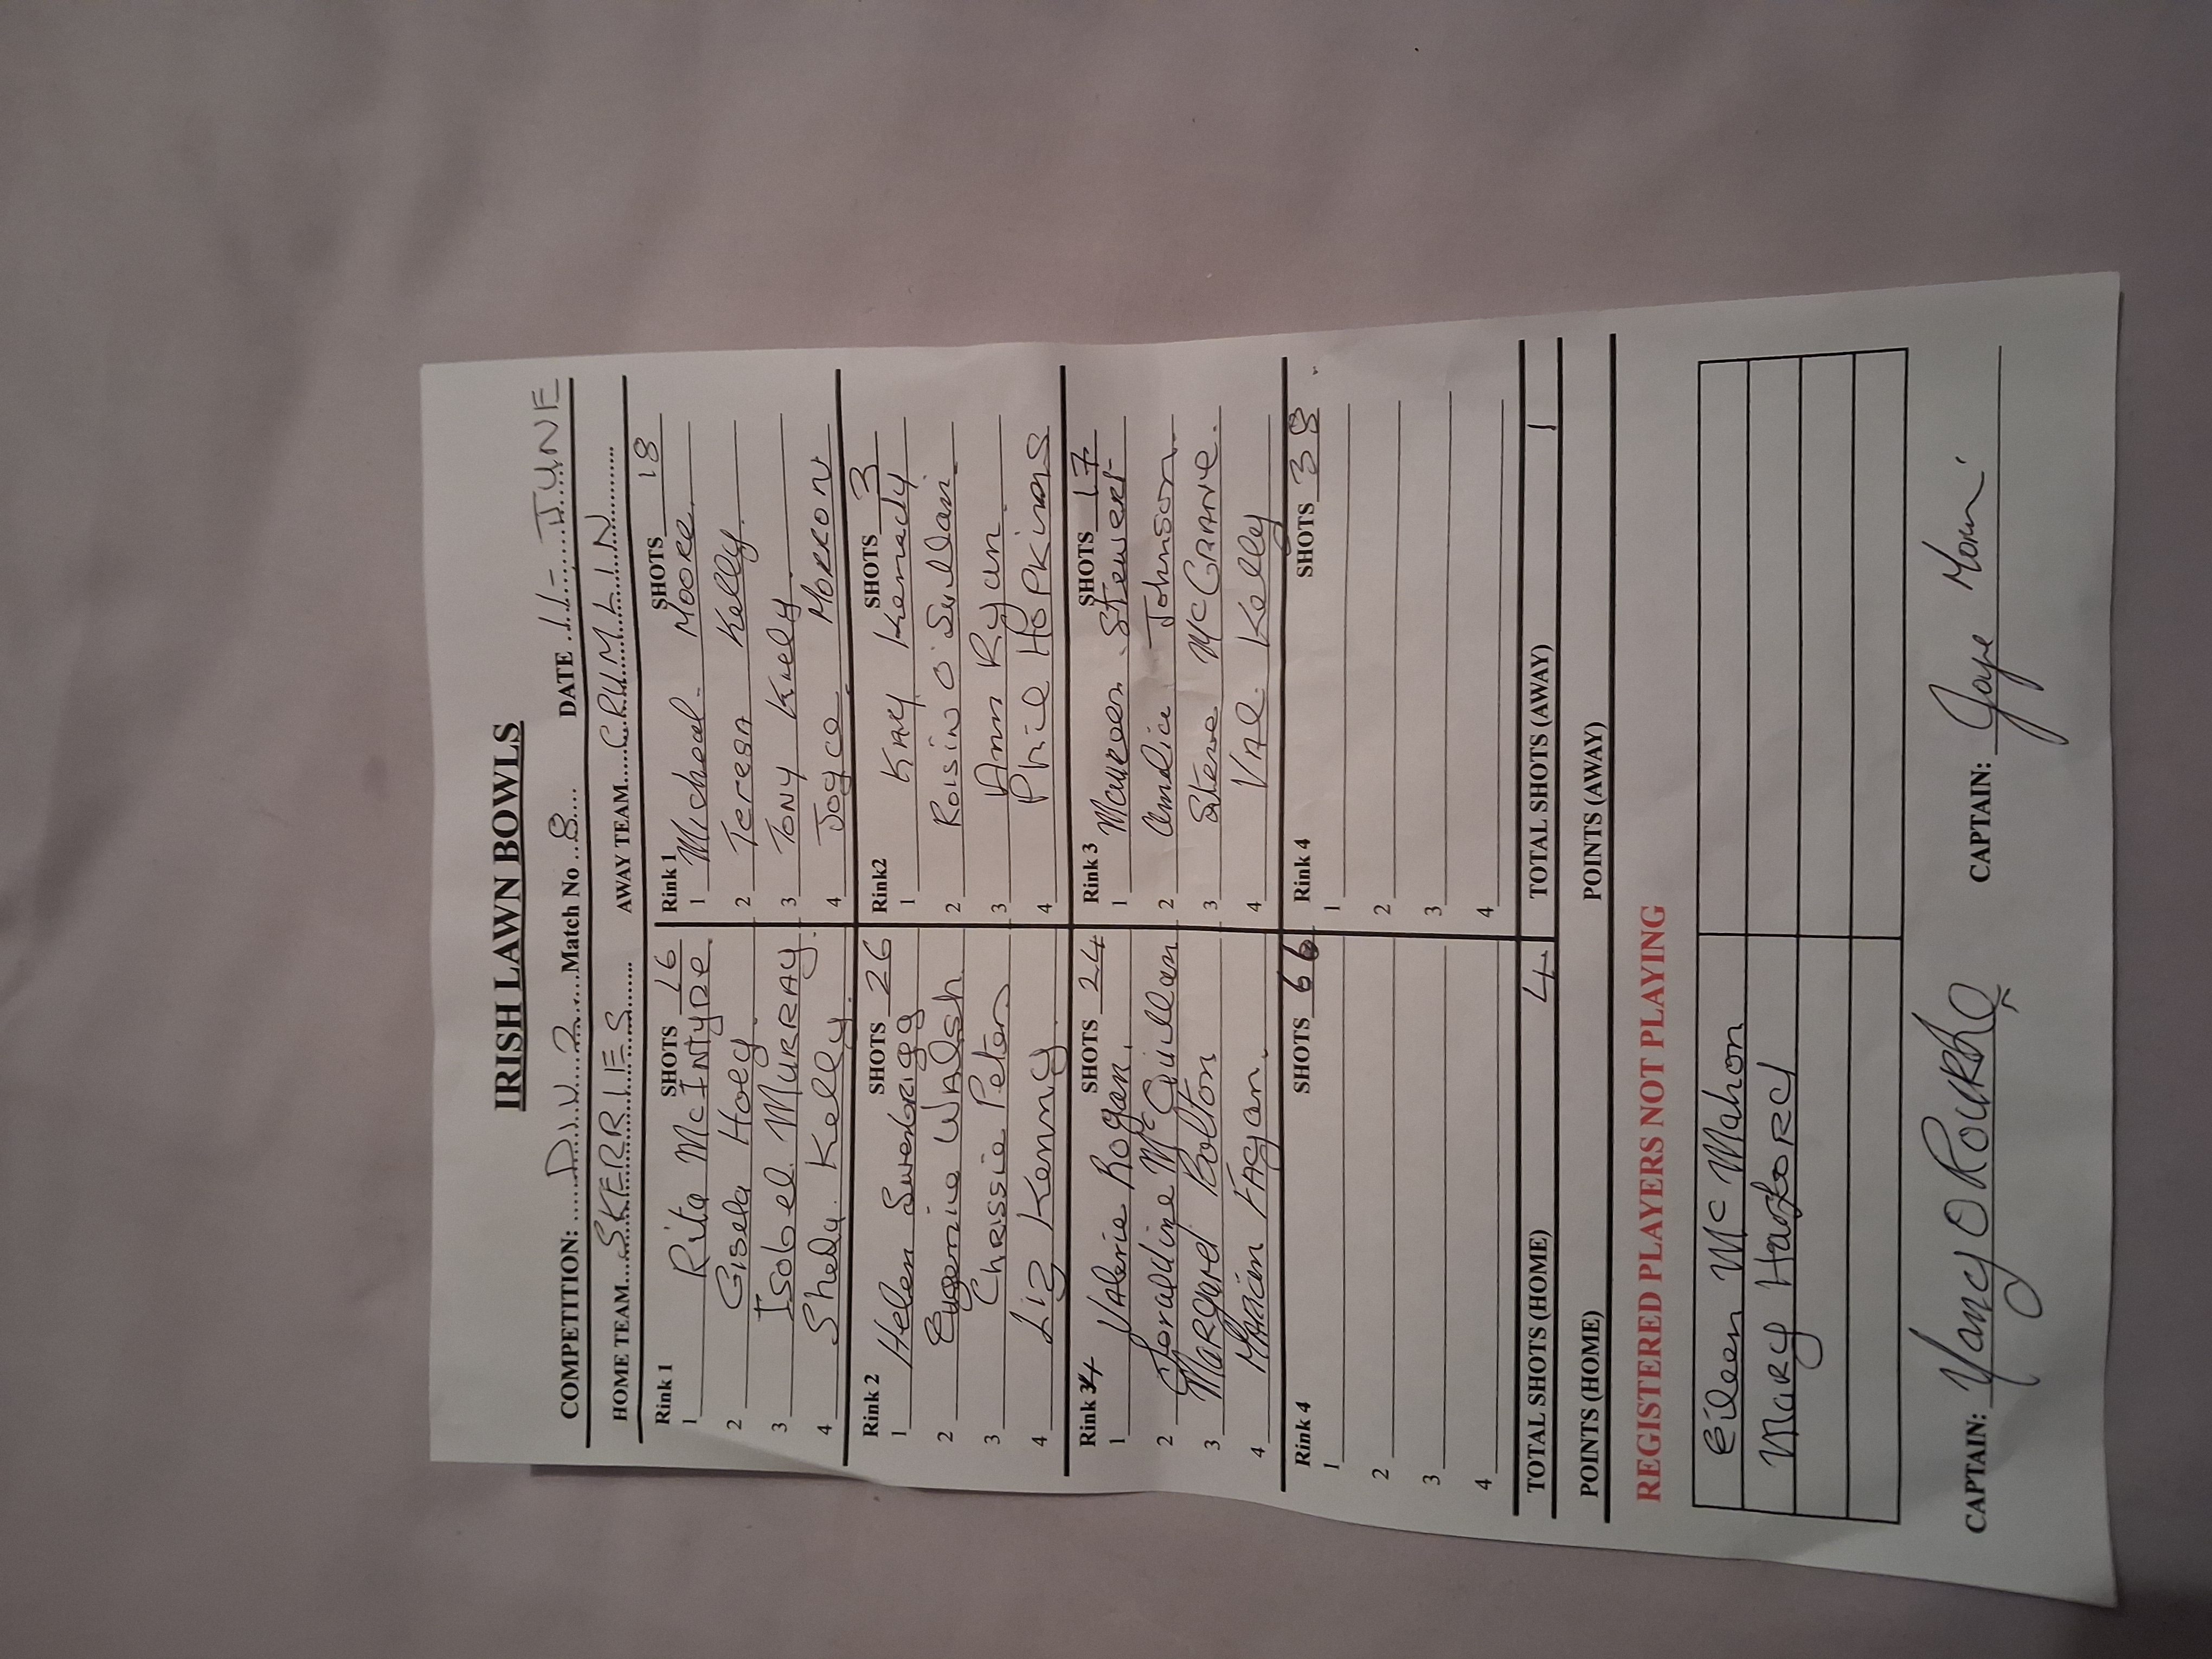 IRISH LAWN BOWLS
COMPETITION: DIV 2 Match No 8 DATE 11- JUNE
HOME TEAM SKERRIES AWAY TEAM CRUMLIN
Rink 1 SHOTS 16
1 Rita McINTYRE
2 Gisela Hoey.
3 Isobel MURRAY.
4 Sheila Kelly.
Rink 1 SHOTS 18
1 Micheal Moore
2 Teresa Kelly
3 Tony Kiely
4 Joyce Morron
Rink 2 SHOTS 26
1 Helen Swerbrigg
2 Eugenie Walsh
3 Chrissie Peter
4 Liz Kenny.
Rink2 SHOTS 3
1 Kay Kennedy
2 Roisin O'Sullivan
3 Ann Ryan
4 Phil Hopkins
Rink 4 SHOTS 24
1 Valerie Rogan
2 Geraldine McQuillan
3 Margaret Bolton
4 Marian Fagan.
Rink 3 SHOTS 17
1 Maureen Stewert
2 Amelia Johnson
3 Steve McGrane.
4 Val Kelly
Rink 4 SHOTS 66
1
2
3
4
Rink 4 SHOTS 38
1
2
3
4
TOTAL SHOTS (HOME) 4 TOTAL SHOTS (AWAY) 1
POINTS (HOME) POINTS (AWAY)
REGISTERED PLAYERS NOT PLAYING
Eileen McMahon
Mary Harford
CAPTAIN: Nancy O Rourke CAPTAIN: Joyce